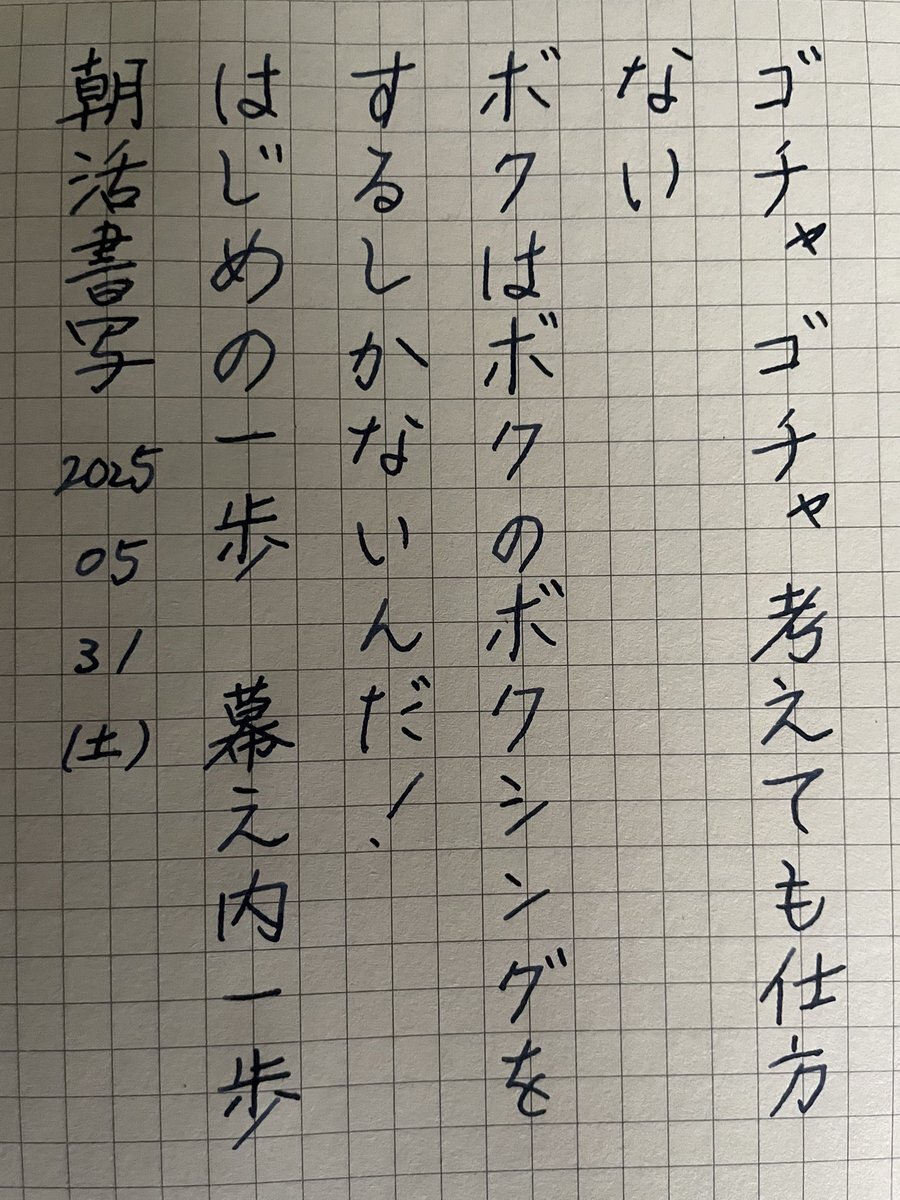 ゴチャゴチャ考えても仕方
ない
ボクはボクのボクシングを
するしかないんだ！
はじめの一歩 幕え内一歩
朝活書写 2025 05 31 (土)